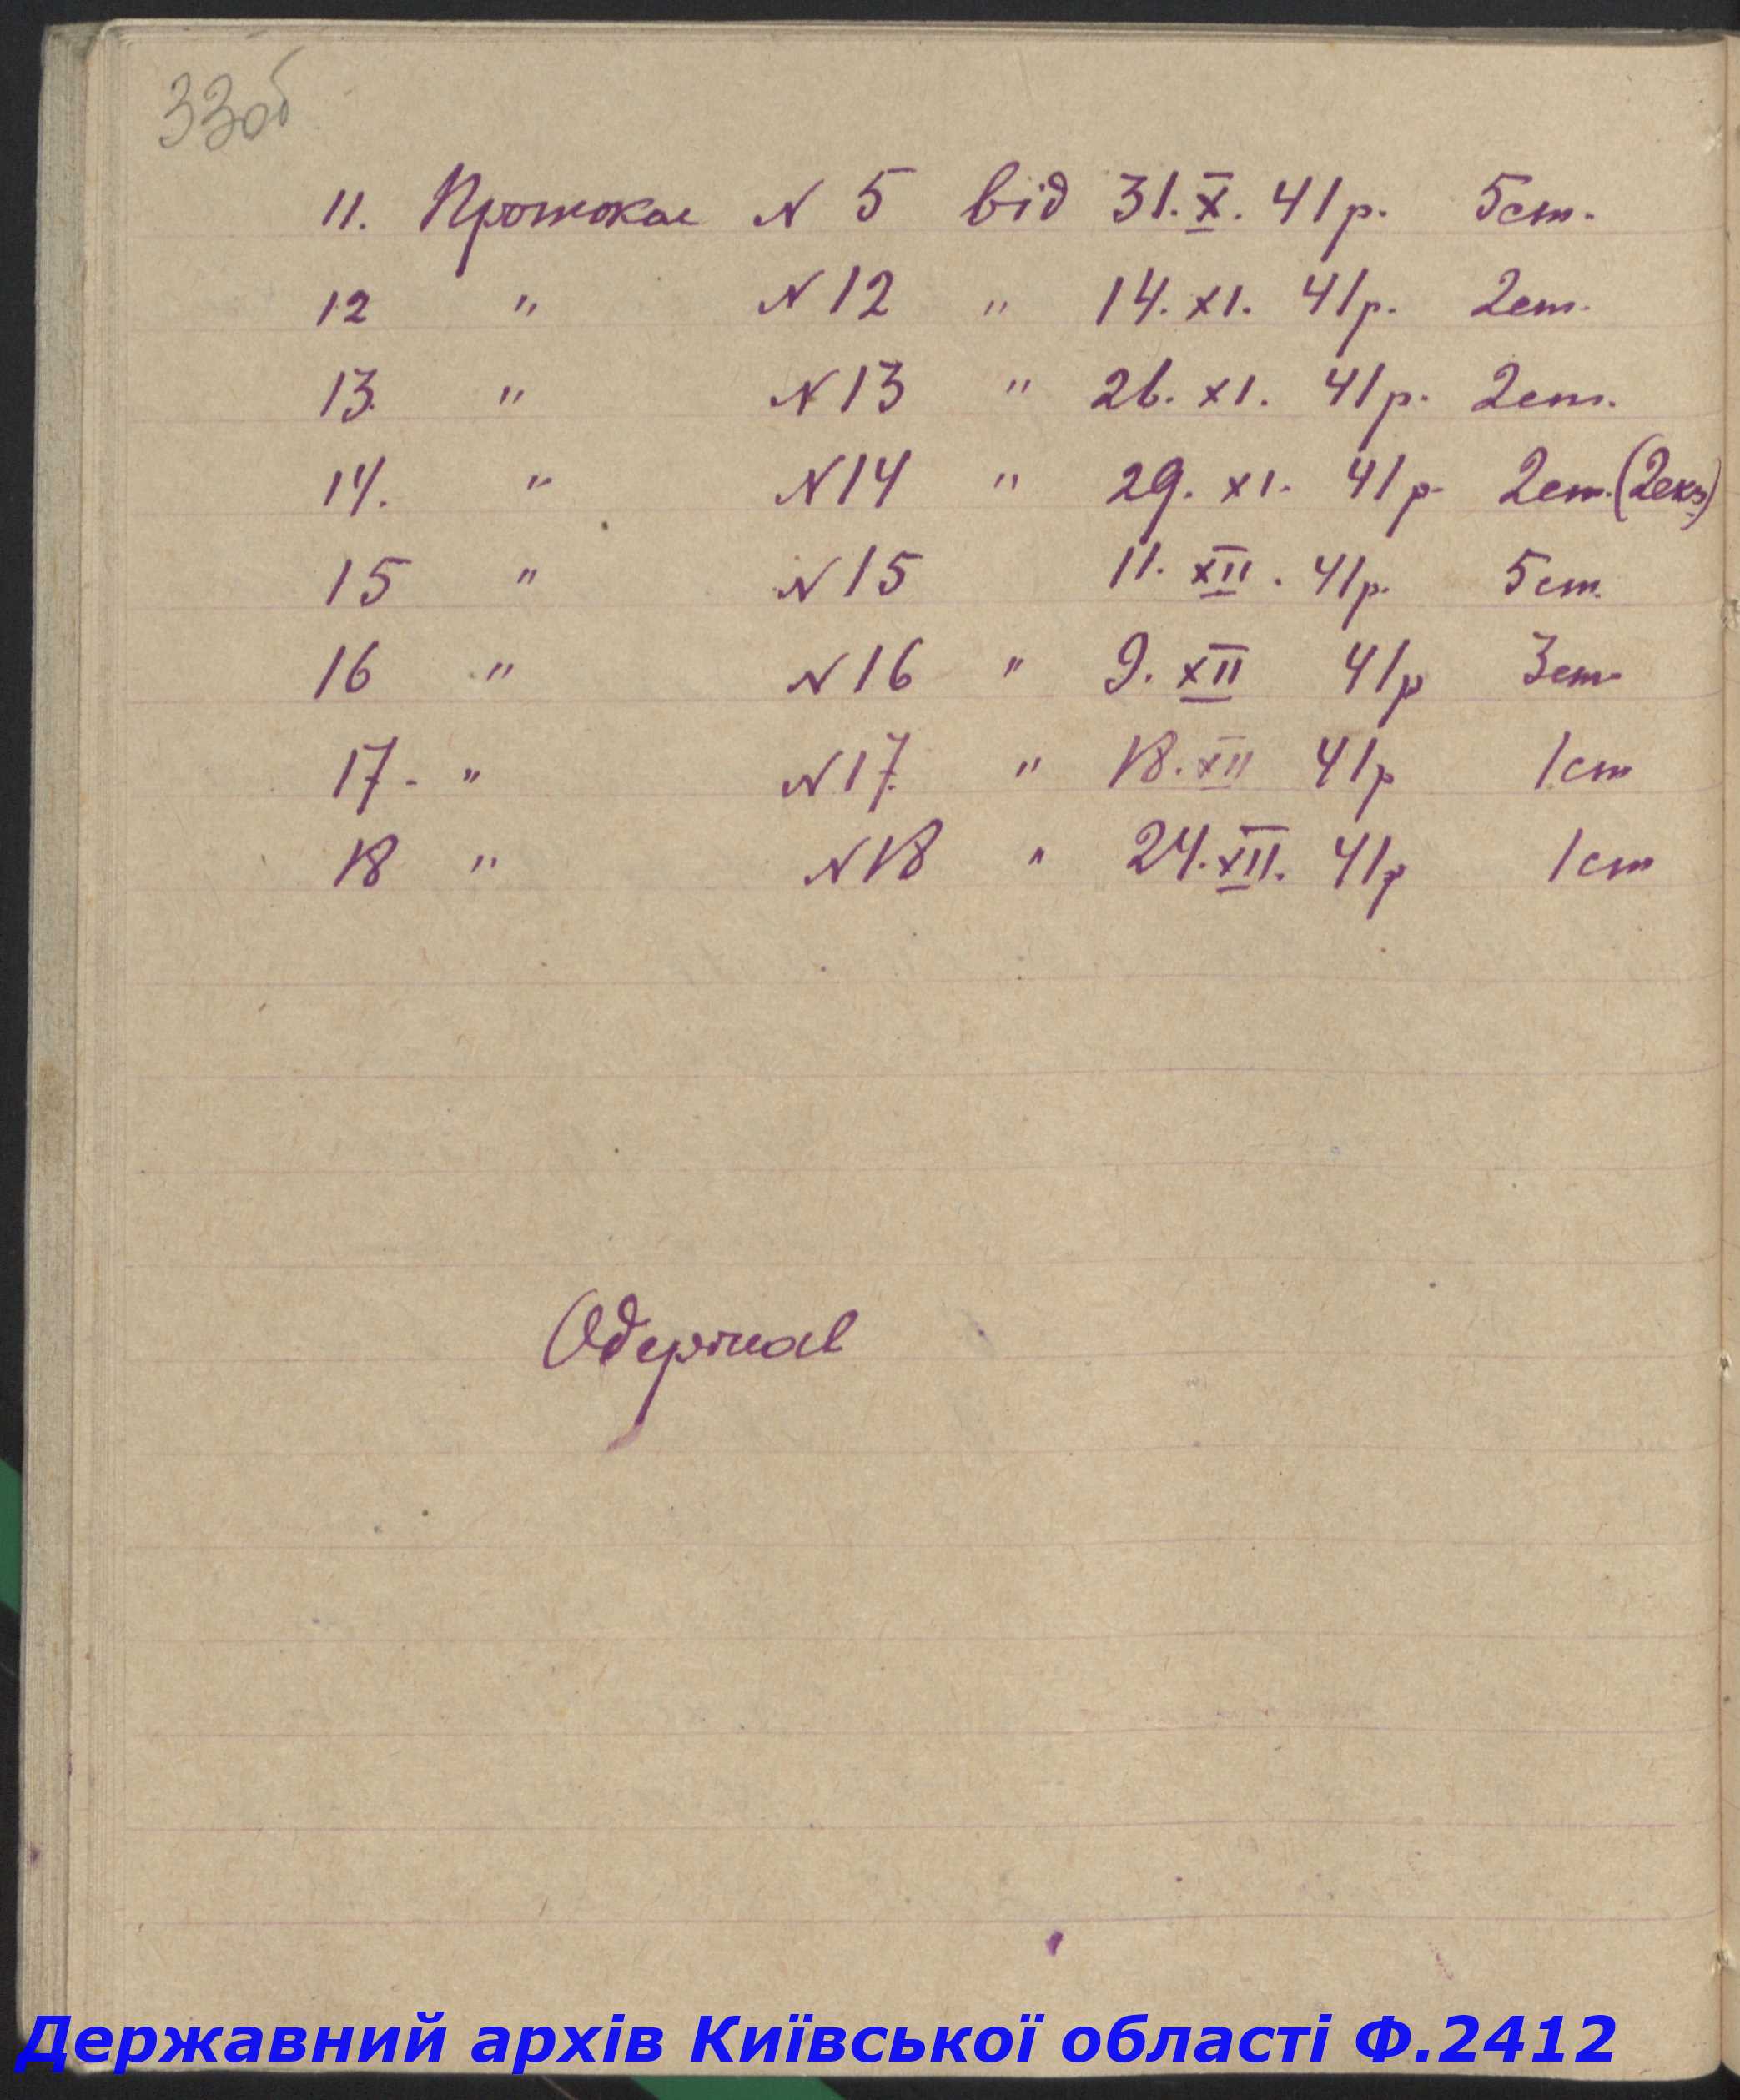 33об
11. Протокол N 5 від 31. X. 41 р. 5 ст.
12 " N 12 " 14. XI. 41 р. 2 ст.
13. " N 13 " 26. XI. 41 р. 2 ст.
14. " N 14 " 29. XI. 41 р. 2 ст. (2 екз)
15 " N 15 11. XII. 41 р. 5 ст.
16 " N 16 " 9. XII 41 р 3 ст.
17. " N 17. " 18. XII 41 р 1 ст
18 " N 18 " 24. XII. 41 р 1 ст
Одержав
Державний архів Київської області Ф.2412